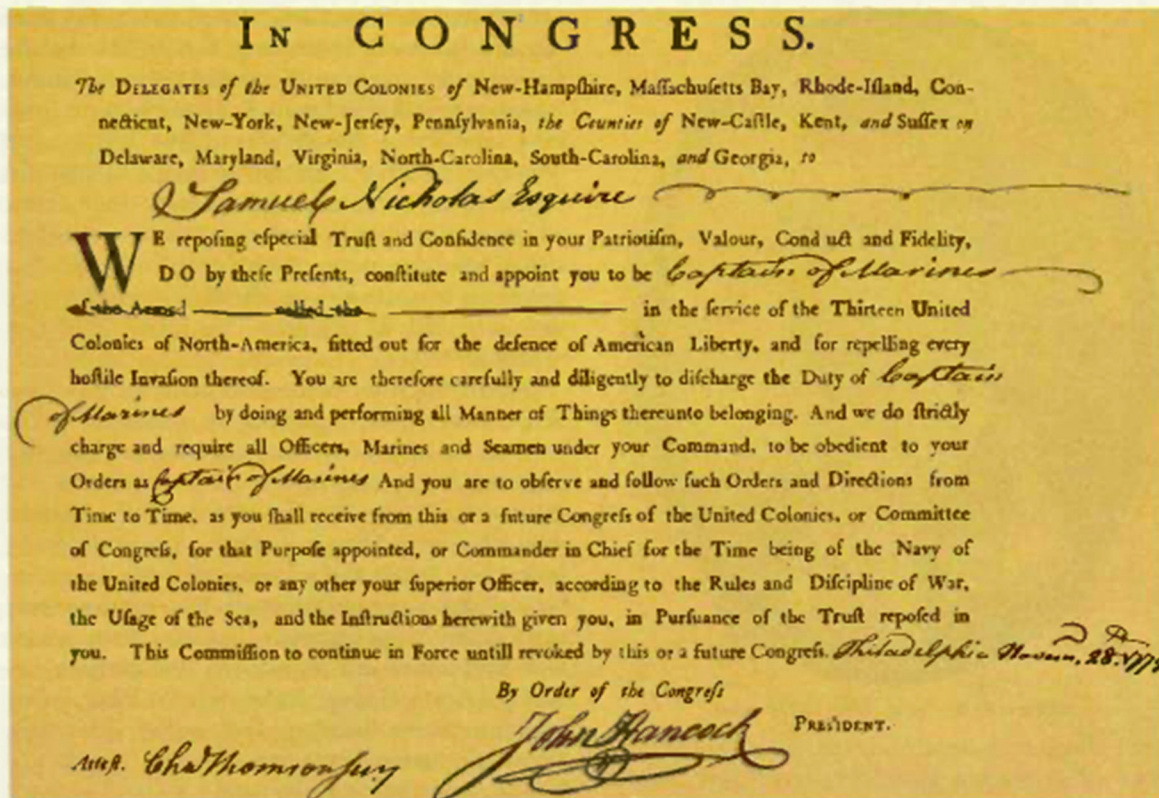 IN CONGRESS.
The DELEGATES of the UNITED COLONIES of New-Hampſhire, Maſſachuſetts Bay, Rhode-Iſland, Con-
necticut, New-York, New-Jerſey, Pennſylvania, the Counties of New-Caſtle, Kent, and Suſſex on
Delaware, Maryland, Virginia, North-Carolina, South-Carolina, and Georgia, to
Samuel Nicholas Esquire
WE repoſing eſpecial Truſt and Confidence in your Patriotiſm, Valour, Conduct and Fidelity,
DO by theſe Preſents, conſtitute and appoint you to be Captain of Marines
of the Armed called the in the ſervice of the Thirteen United
Colonies of North-America, fitted out for the defence of American Liberty, and for repelling every
hoſtile Invaſion thereof. You are therefore carefully and diligently to diſcharge the Duty of Captain
of Marines by doing and performing all Manner of Things thereunto belonging. And we do ſtrictly
charge and require all Officers, Marines and Seamen under your Command, to be obedient to your
Orders as Captain of Marines And you are to obſerve and follow ſuch Orders and Directions from
Time to Time, as you ſhall receive from this or a future Congreſs of the United Colonies, or Committee
of Congreſs, for that Purpoſe appointed, or Commander in Chief for the Time being of the Navy of
the United Colonies, or any other your ſuperior Officer, according to the Rules and Diſcipline of War,
the Uſage of the Sea, and the Inſtructions herewith given you, in Purſuance of the Truſt repoſed in
you. This Commiſſion to continue in Force untill revoked by this or a future Congreſs. Philadelphia Novem. 28.th 1775
By Order of the Congreſs
John Hancock PRESIDENT.
Atteſt. Cha Thomson ſecy